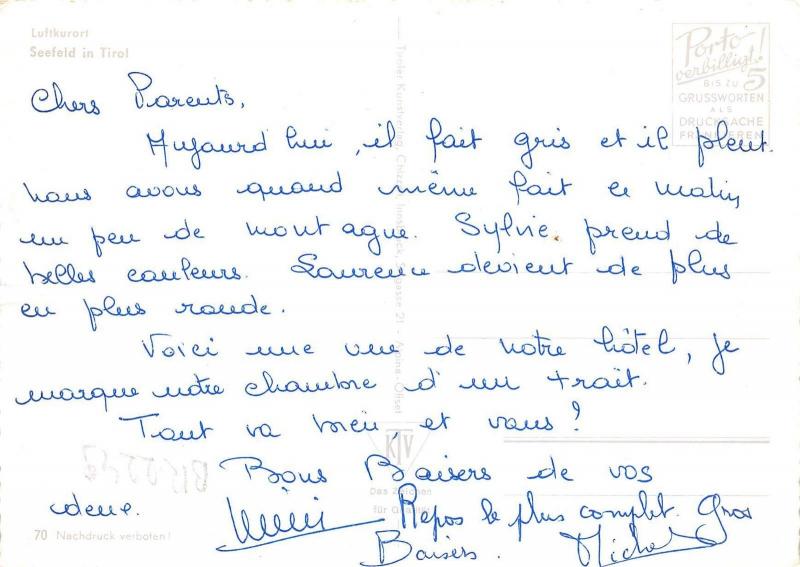 Luftkurort
Seefeld in Tirol
Porto verbilligt!
BIS ZU 5
GRUSSWORTEN
ALS
DRUCKSACHE
FRANKIEREN
Chers Parents,
Aujourd'hui, il fait gris et il pleut.
nous avons quand même fait ce matin,
un peu de montagne. Sylvie prend de
belles couleurs. Laurence devient de plus
en plus ronde.
Voici une vue de notre hôtel, je
marque notre chambre d'un trait.
Tout va bien, et vous ?
Bons Baisers de vos
deux.
Repos le plus complet. Gros
Baisers. Michel
Tiroler Kunstverlag, Innsbruck, 21
KTV
Das Zeichen
für Qualität
70 Nachdruck verboten!